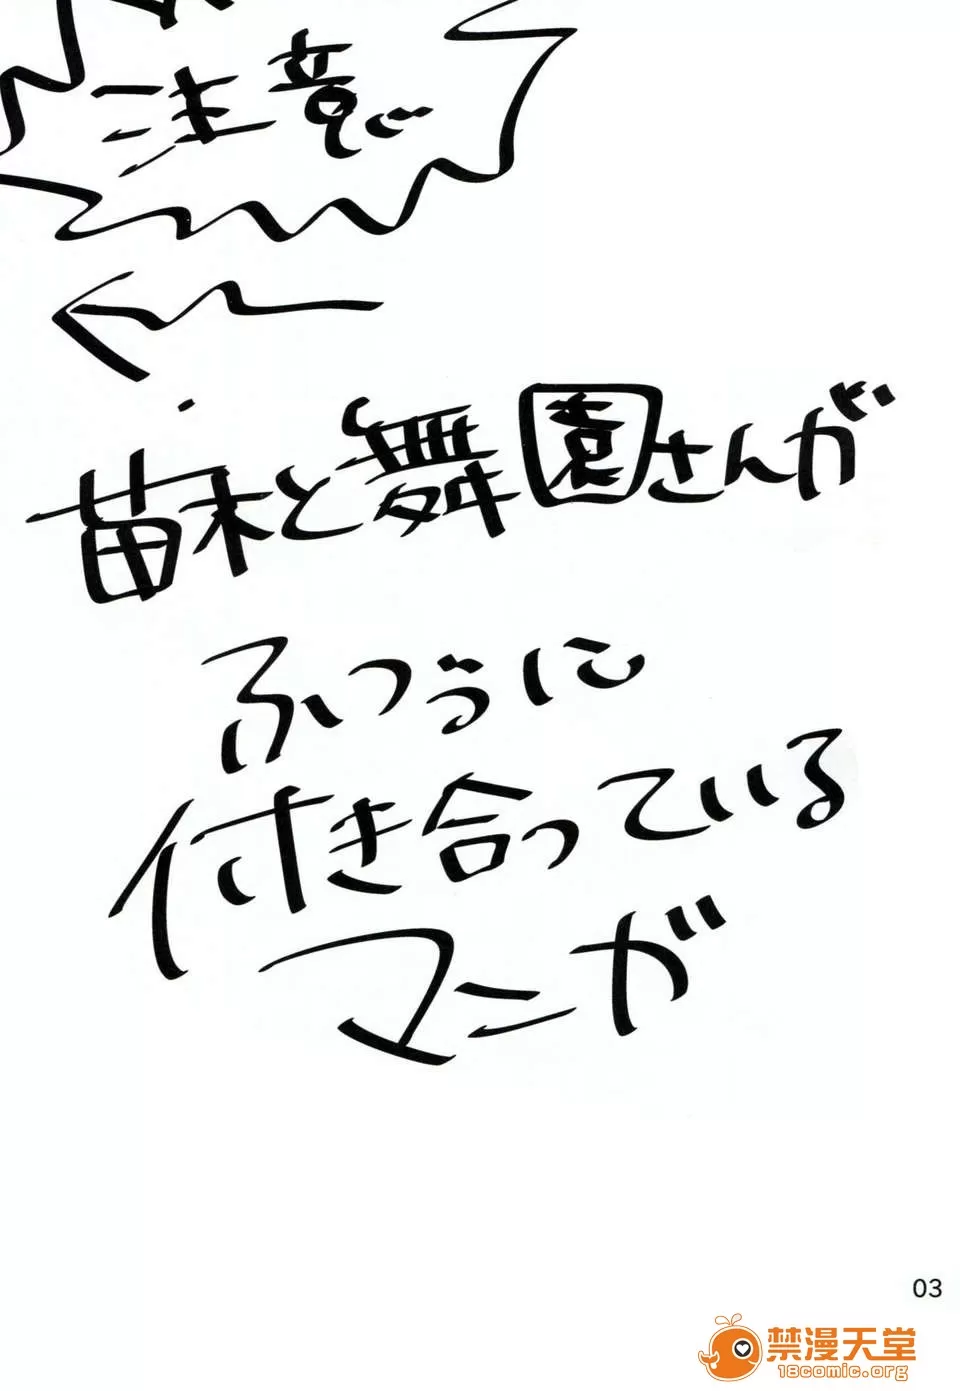 注意
苗木と舞園さんが
ふつうに
付き合っている
マンガ
03
禁漫天堂
18comic.org